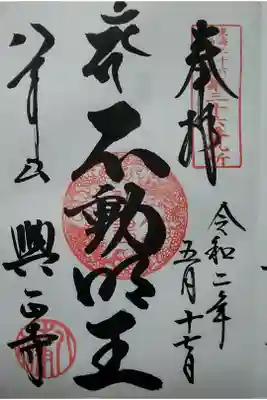 奉拝
令和二年
五月十七日
不動明王
八事山
興正寺